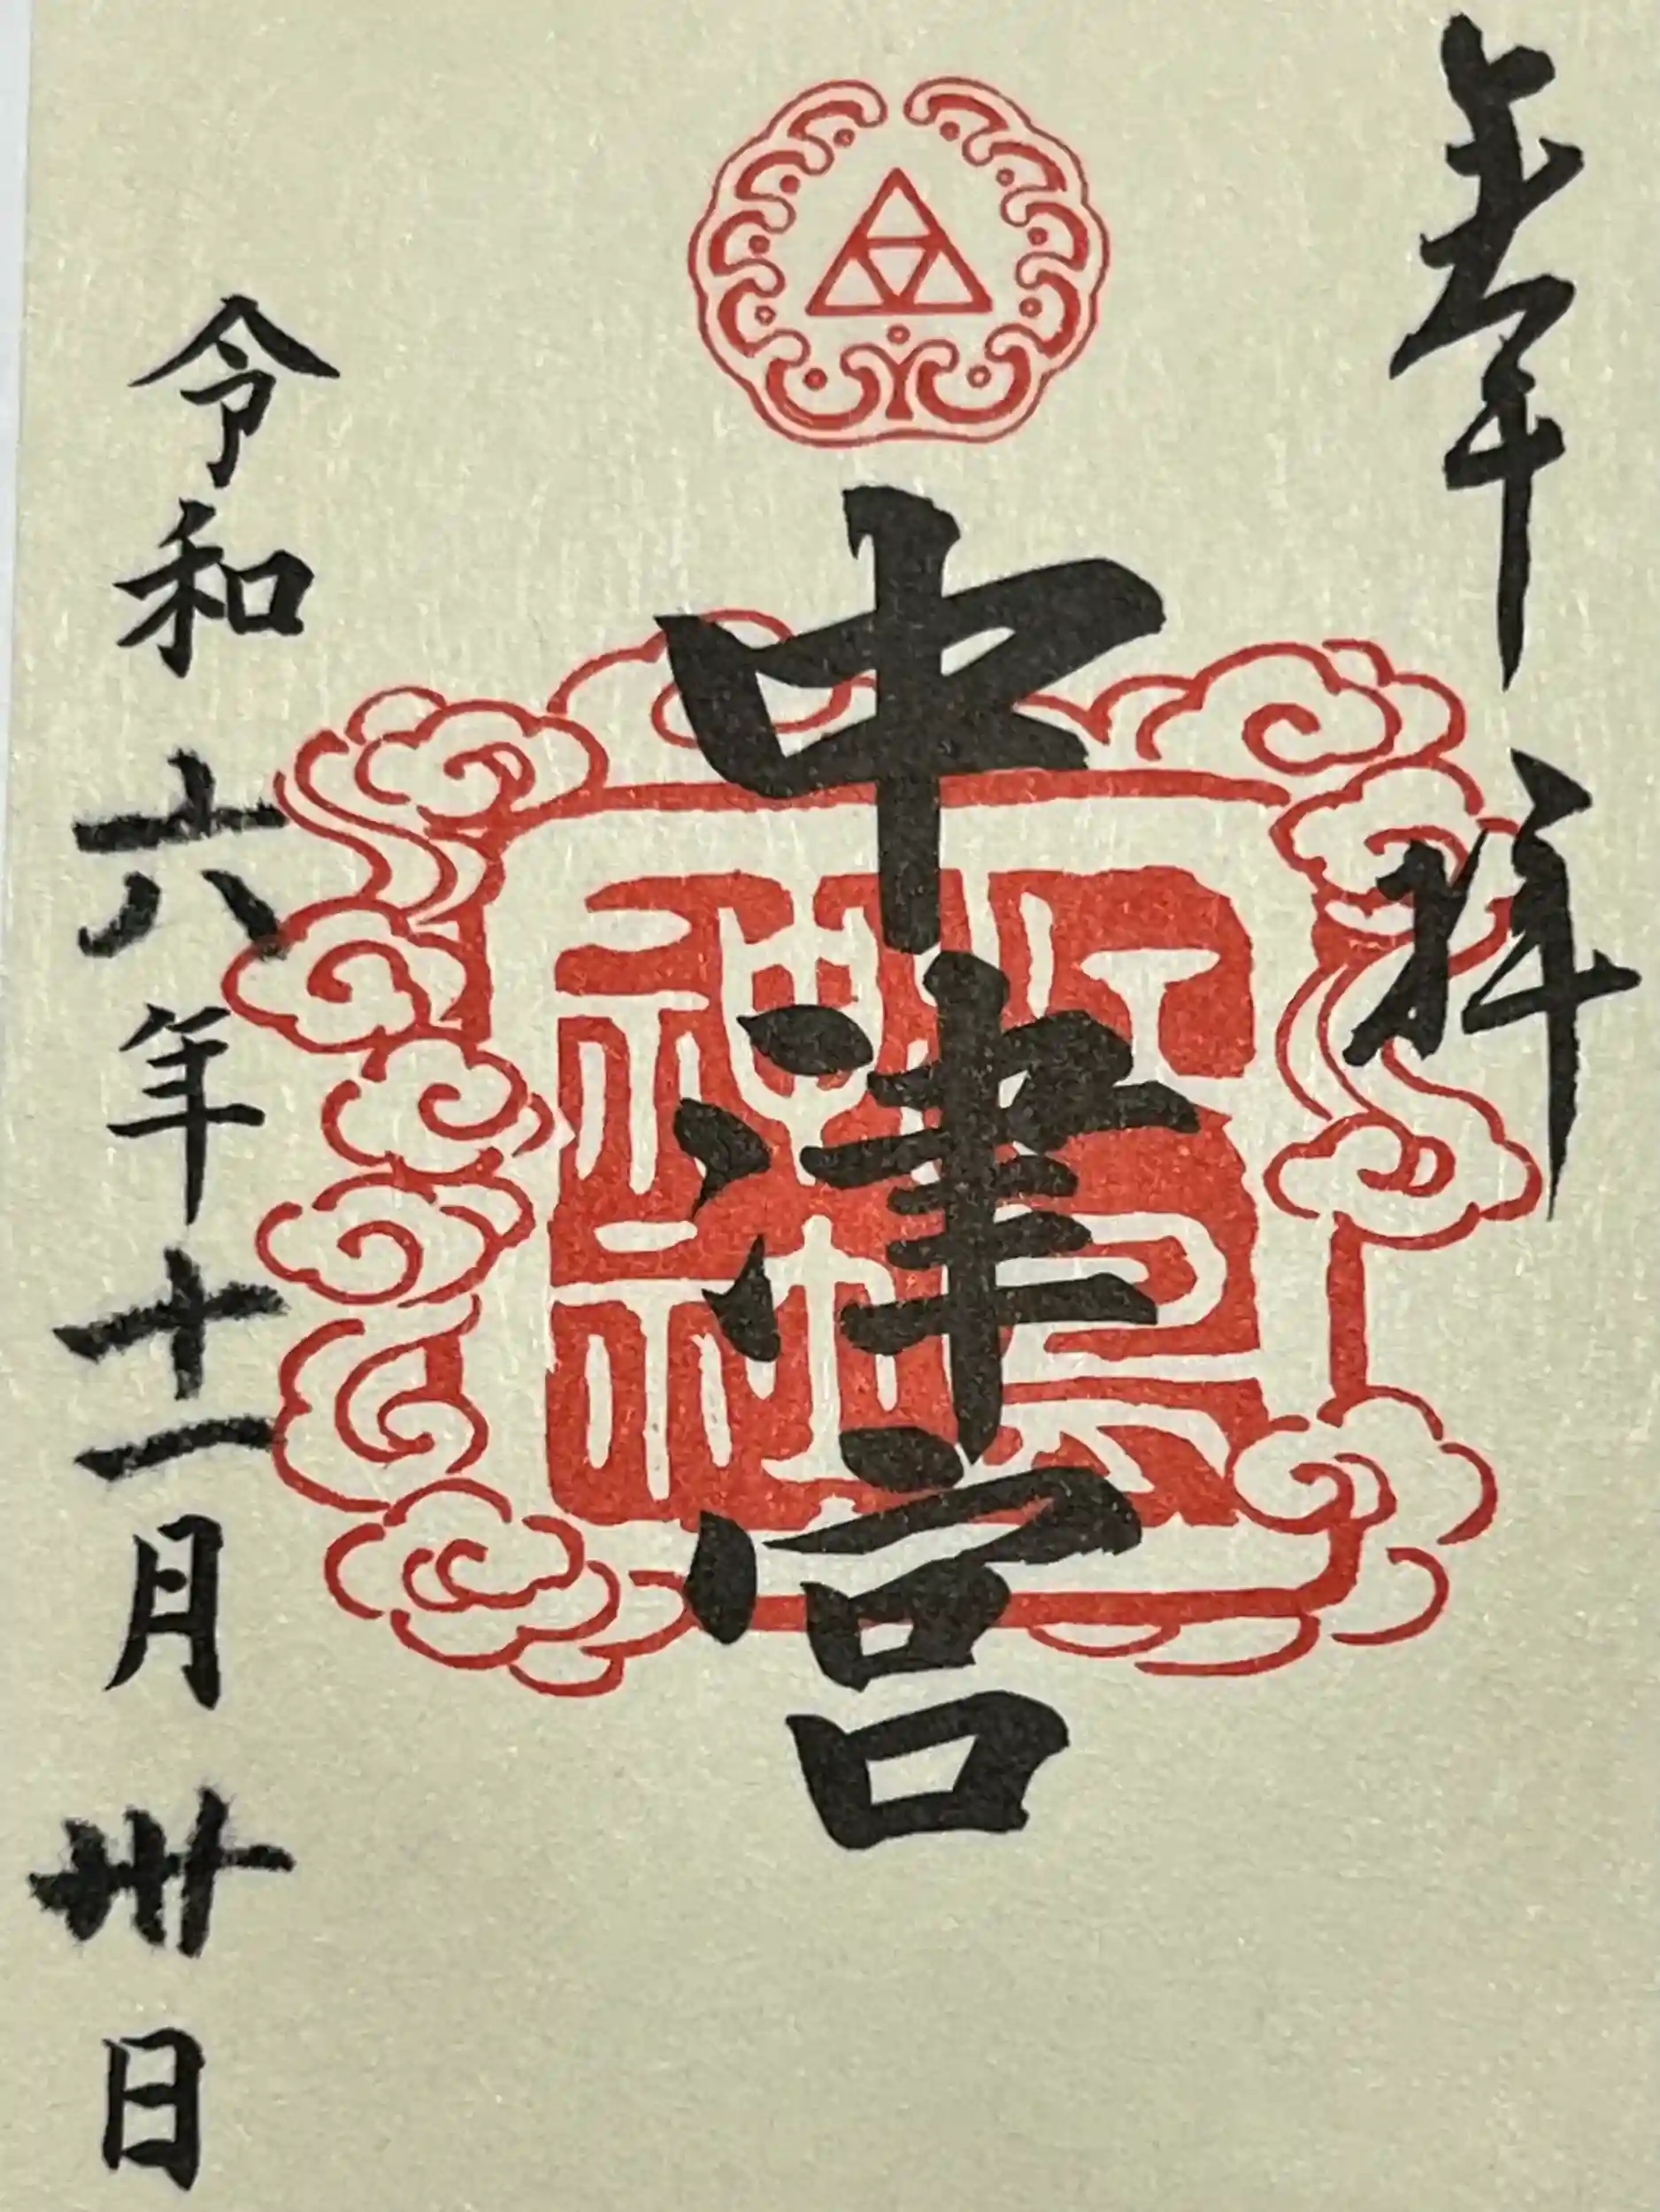 奉拝
中津宮
令和六年十一月卅日